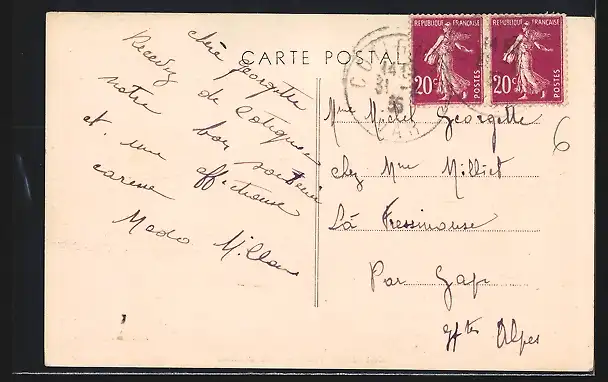 CARTE POSTALE
REPUBLIQUE FRANÇAISE
20c POSTES
REPUBLIQUE FRANÇAISE
20c POSTES
31
35
VAR
chère Georgette
Recevez de Cotignac
notre bon souvenir
et une affectueuse
caresse
Mado
Georgette
chez Mme Milliet
La Fressinouse
Par Gap
Htes Alpes
6